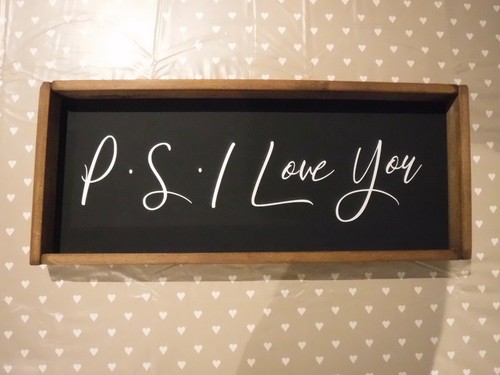 P.S. I Love You